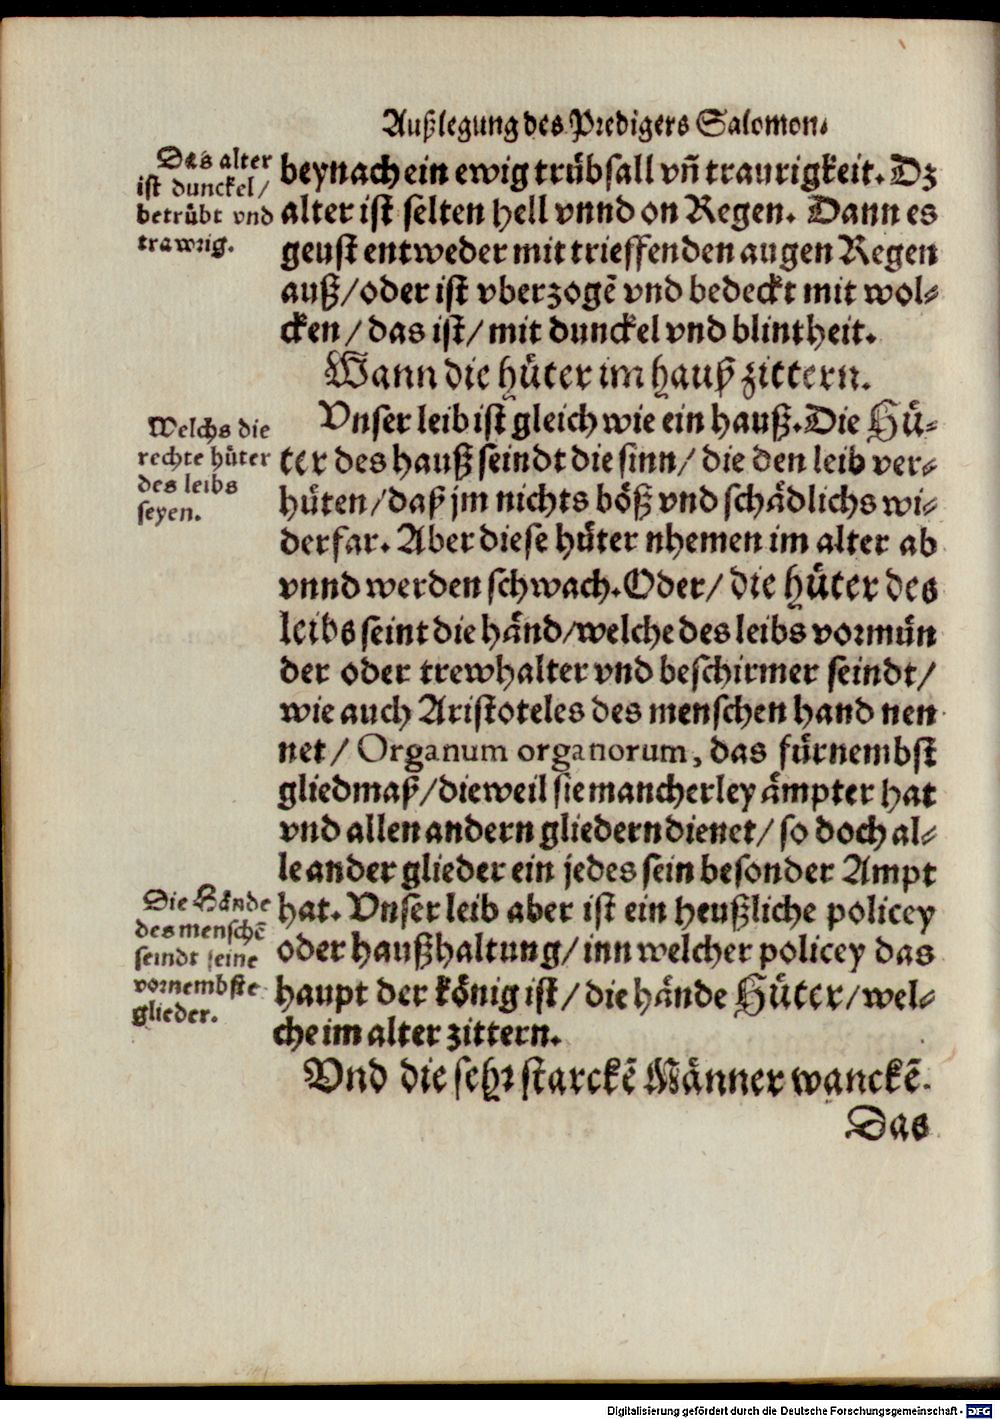 Außlegung des Predigers Salomon.
Das alter
ist dunckel/
betrübt vnd
trawrig.
beynach ein ewig trübsall vn̄ traurigkeit. Dz
alter ist selten hell vnnd on Regen. Dann es
geust entweder mit trieffenden augen Regen
auß/oder ist vberzogē vnd bedeckt mit wol⸗
cken/das ist/mit dunckel vnd blintheit.
Wann die hüter im hauß zittern.
Welchs die
rechte hüter
des leibs
seyen.
Vnser leib ist gleich wie ein hauß. Die Hü⸗
ter des hauß seindt die sinn/ die den leib ver⸗
hüten/daß jm nichts böß vnd schädlichs wi⸗
derfar. Aber diese hüter nhemen im alter ab
vnnd werden schwach. Oder/ die hüter des
leibs seint die händ/welche des leibs vormün
der oder trewhalter vnd beschirmer seindt/
wie auch Aristoteles des menschen hand nen
net/ Organum organorum, das fürnembst
gliedmaß/dieweil sie mancherley ämpter hat
vnd allen andern gliedern dienet/ so doch al⸗
le ander glieder ein jedes sein besonder Ampt
Die Hände
des menschē
seindt seine
vornembste
glieder.
hat. Vnser leib aber ist ein heußliche policey
oder haußhaltung/ inn welcher policey das
haupt der könig ist/ die hände Hüter/wel⸗
che im alter zittern.
Vnd die sehr starckē Männer wanckē.
Das
Digitalisierung gefördert durch die Deutsche Forschungsgemeinschaft - DFG